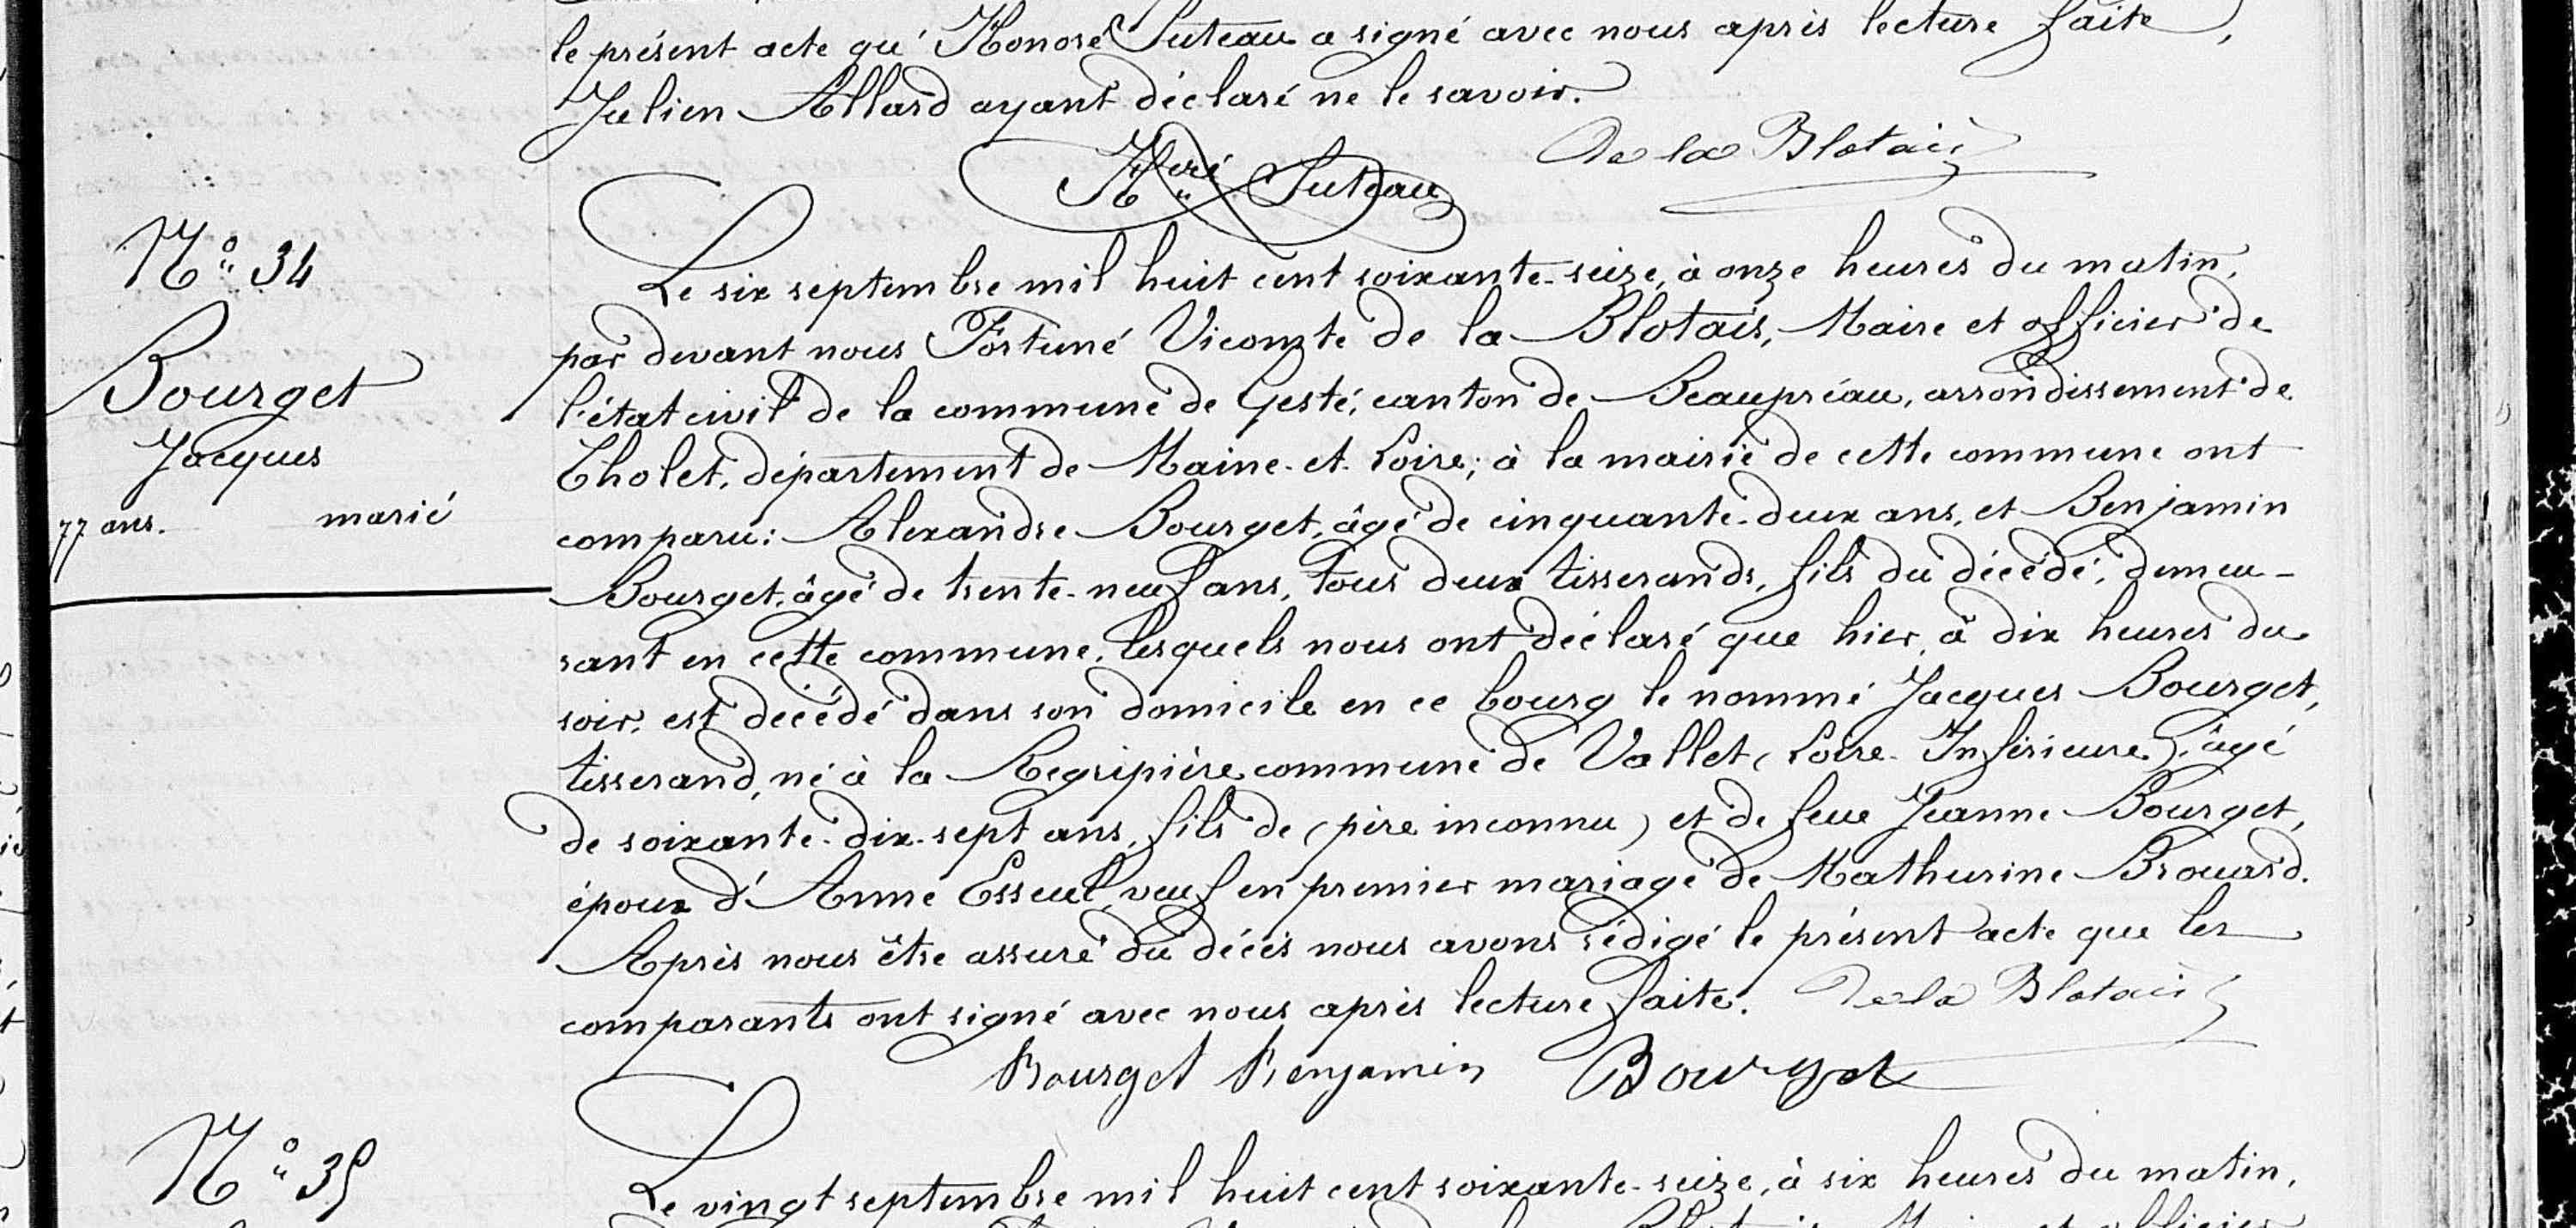 le présent acte qu'Honoré Suteau a signé avec nous après lecture faite,
Julien Allard ayant déclaré ne le savoir.
De la Blotais
Hré Suteau
N° 34
Bourget
Jacques
77 ans. marié
Le six septembre mil huit cent soixante-seize, à onze heures du matin,
par devant nous Fortuné Vicomte de la Blotais, Maire et officier de
l'état civil de la commune de Gesté, canton de Beaupréau, arrondissement de
Cholet, département de Maine-et-Loire; à la mairie de cette commune ont
comparu: Alexandre Bourget, âgé de cinquante-deux ans, et Benjamin
Bourget, âgé de trente-neuf ans, tous deux tisserands, fils du décédé, demeu-
rant en cette commune, lesquels nous ont déclaré que hier, à dix heures du
soir, est décédé dans son domicile en ce bourg le nommé Jacques Bourget,
tisserand, né à la Regripière commune de Vallet (Loire-Inférieure), âgé
de soixante-dix-sept ans, fils de (père inconnu) et de feue Jeanne Bourget,
époux d'Anne Esseul, veuf en premier mariage de Mathurine Brouard.
Après nous être assuré du décès nous avons rédigé le présent acte que les
comparants ont signé avec nous après lecture faite. De la Blotais
Bourget Benjamin Bourget
N° 35
Le vingt septembre mil huit cent soixante-seize, à six heures du matin,